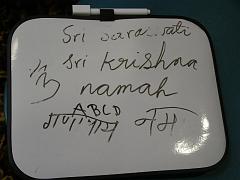 Sri saraswati
sri krishna
ॐ namah
ABCD
नम